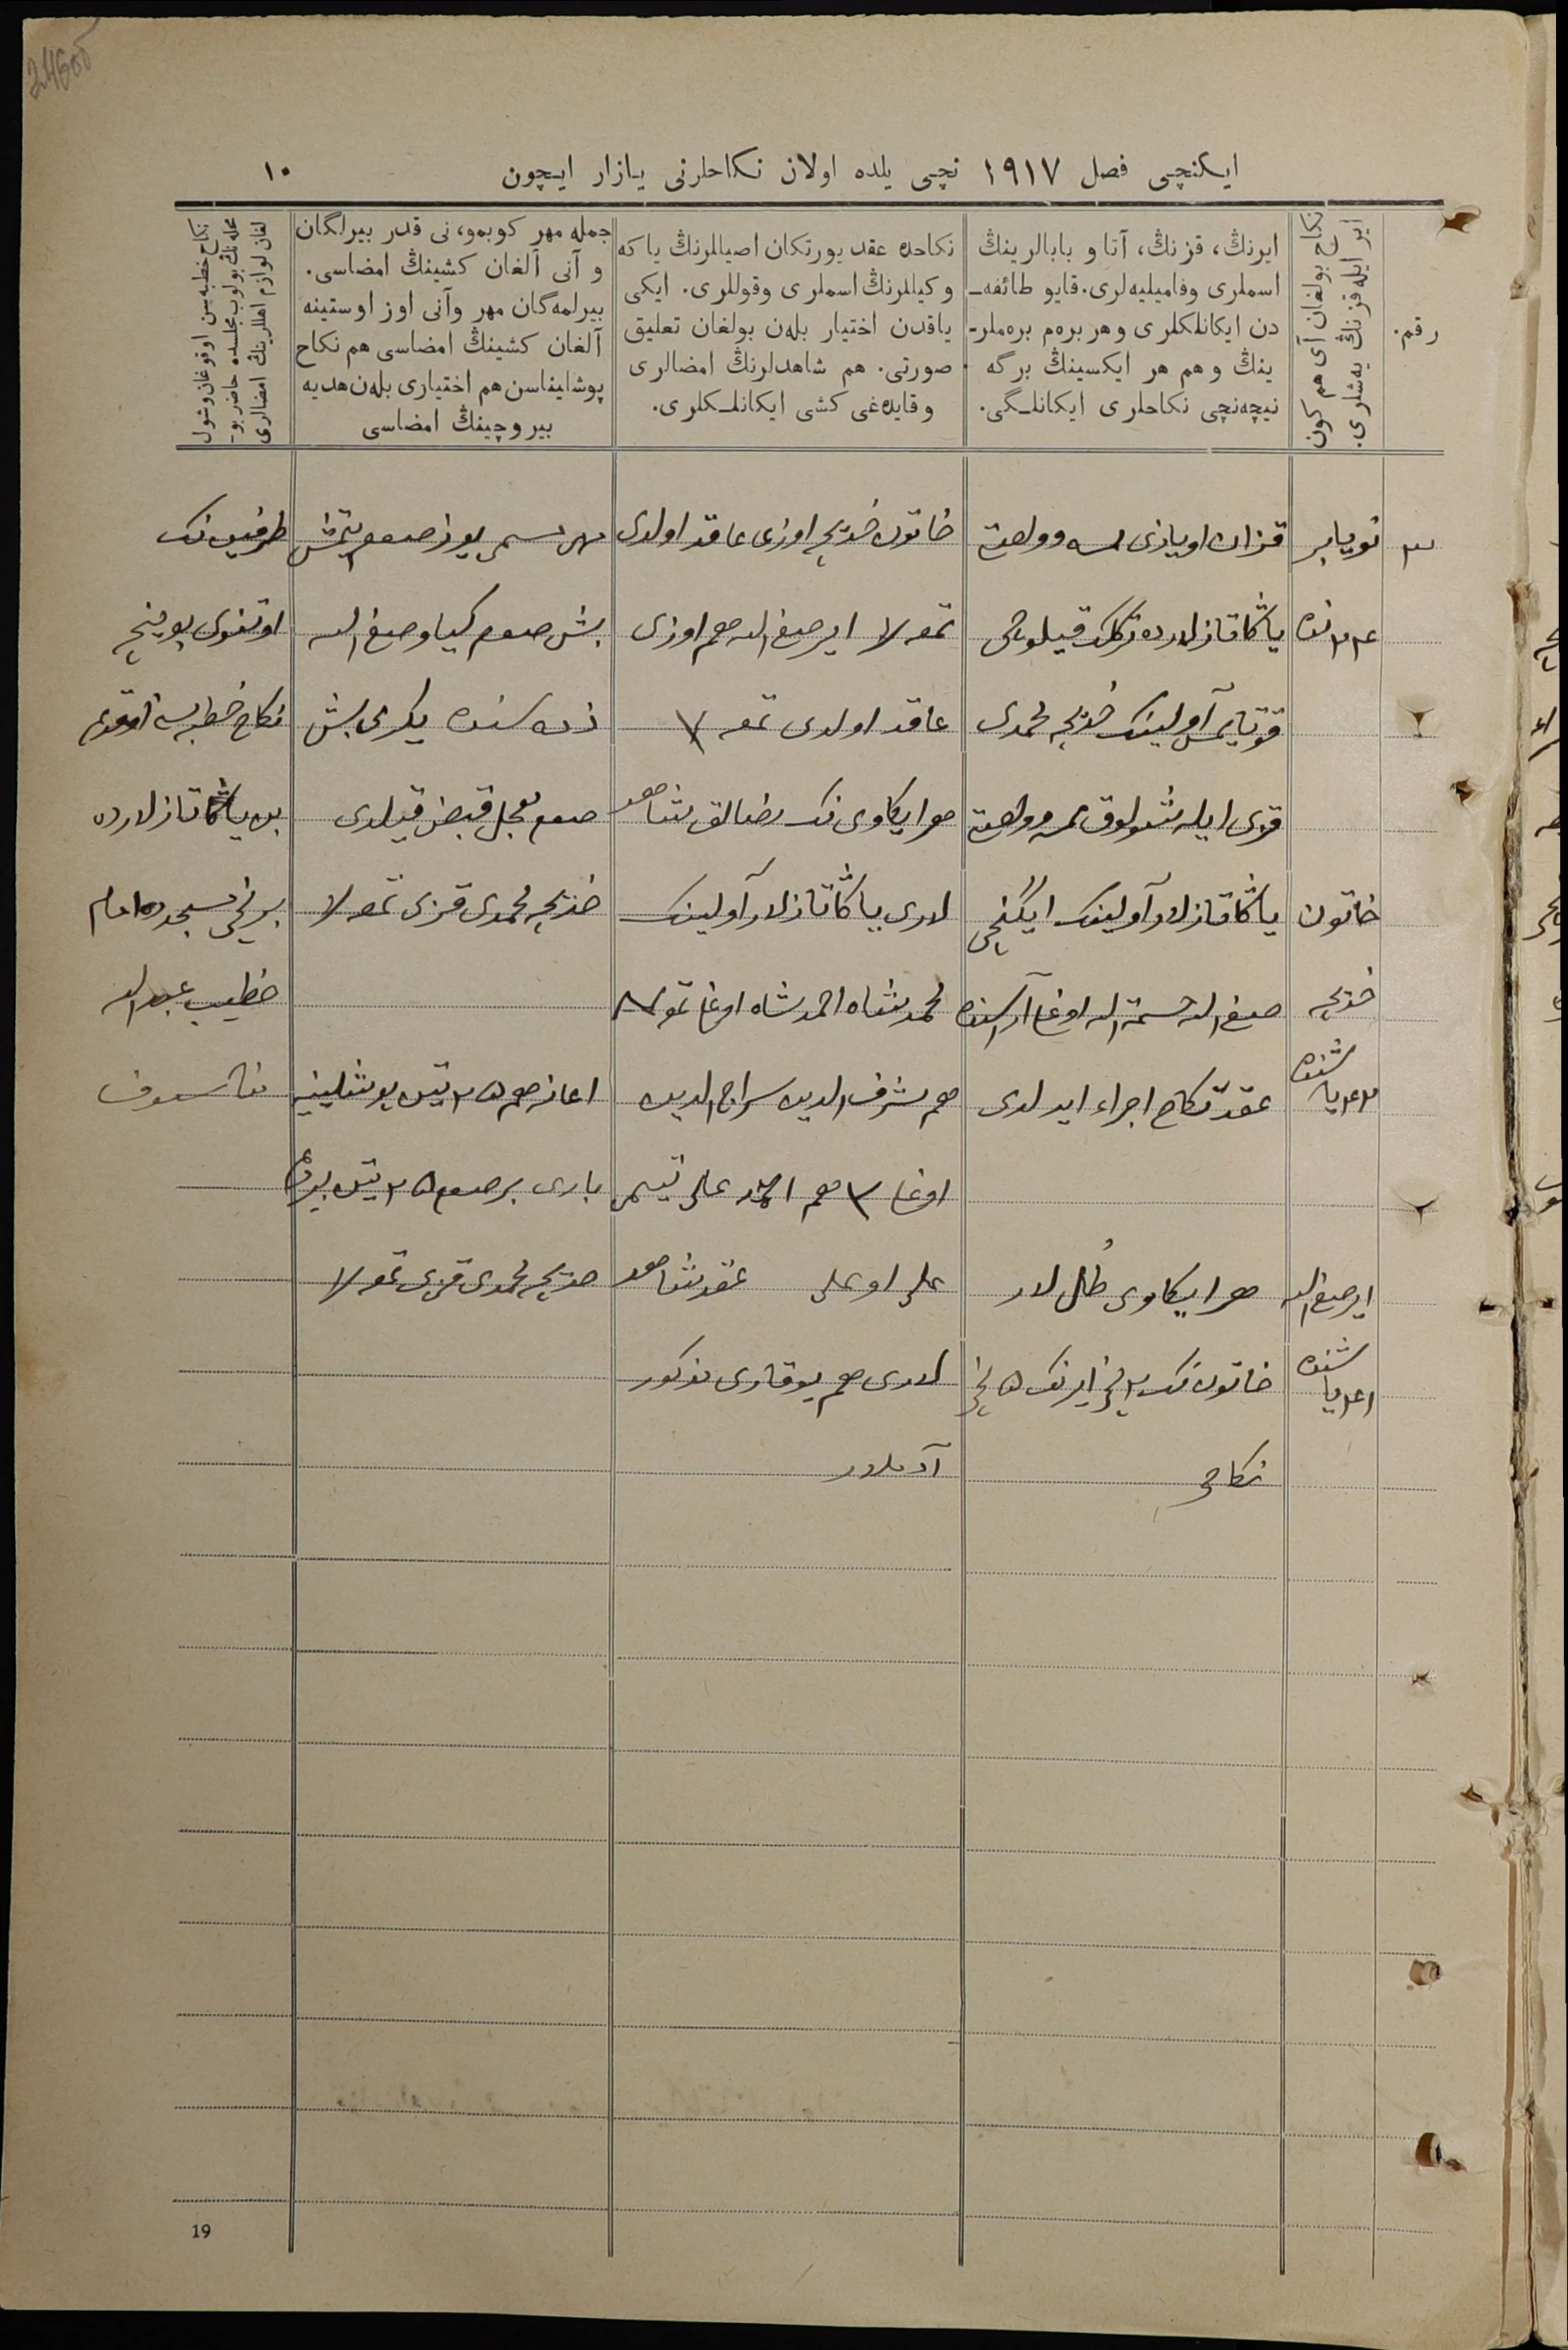 ایکنچی فصل ١٩١٧ نچی یلده اولان نکاحلرنی یازار ایچون
١٠
رقم.
نکاح بولغان آی هم کون
ایر ایله قزنڭ یه‌شلری.
ایرنڭ، قزنڭ، آتا و بابالرینڭ
اسملری وفامیلیه‌لری. قایو طائفه‌ـ
دن ایکانلکلری و هر بره‌م بره‌ملرـ
ینڭ و هم هر ایکسینڭ برگه
نیچه‌نچی نکاحلری ایکانلـگی.
نکاحده عقد یورتکان اصیاللرنڭ یا که
وکیللرنڭ اسملری وقوللری. ایکی
یاقدن اختیار بله‌ن بولغان تعلیق
صورتی. هم شاهدلرنڭ امضالری
وقایده‌غی کشی ایکانلـکلری.
جمله مهر کوبمو، نی قدر بیرلگان
و آنی آلغان کشینڭ امضاسی.
بیرلمه‌گان مهر وآنی اوز اوستینه
آلغان کشینڭ امضاسی هم نکاح
پوشلیناسن هم اختیاری بله‌ن هدیه
بیروچینڭ امضاسی
نکاح خطبه‌سن اوقوغان وشول
محله‌نڭ بولوب مجلسده حاضر بوـ
لغان لوازم اهللرینڭ امضالری
٣
نویابر
٢٤ نده
خاتون
خدیجه
٤٣ یاشنده
ایر صبغ الله
٤١ یاشنده
قزان اویازی
یاڭا قازلارده ترکلک قیلوچی
قوتایمس آولینک خدیجه محمدی
قزی ایله شولوق
یاڭا قازلار آولینک ایکنچی
صبغ الله حسمة الله اوغلی آراسنده
عقد نکاح اجراء ایدلدی
هر ایکاوی طل لار
خاتون نک ٢ نچی ایرنک ٥ نچی
نکاحی
خاتون خدیجه اوزی عاقد اولدی
تمغه لا ایر صبغ الله هم اوزی
عاقد اولدی تمغه ٧
هر ایکاوی نک رضالق شاهد
لاری یاڭا قازلار آولینک
محمدشاه احمدشاه اوغلی تمغه
هم شرف الدین سراج الدین
اوغلی هم احمد علی
علی اوغلی عقد شاهد
لاری هم یوقاری مذکور
آدملار
مهر مسمی یوز صوم یتمش
بش صوم کیاو صبغ الله
ذمه سنده یکرمی بش
صوم معجل قبض قیلدی
خدیجه محمدی قزی تمغه لا
اعانه هم ٢٥ تین پوشلینه
باری بر صوم ٢٥ تین بیردم
خدیجه محمدی قزی تمغه لا
طرفین نک
اوتنوی بوینچه
نکاح خطبه سن اوقودم
بن یاڭا قازلارده
برنچی مسجدده امام
خطیب عبدالله
19